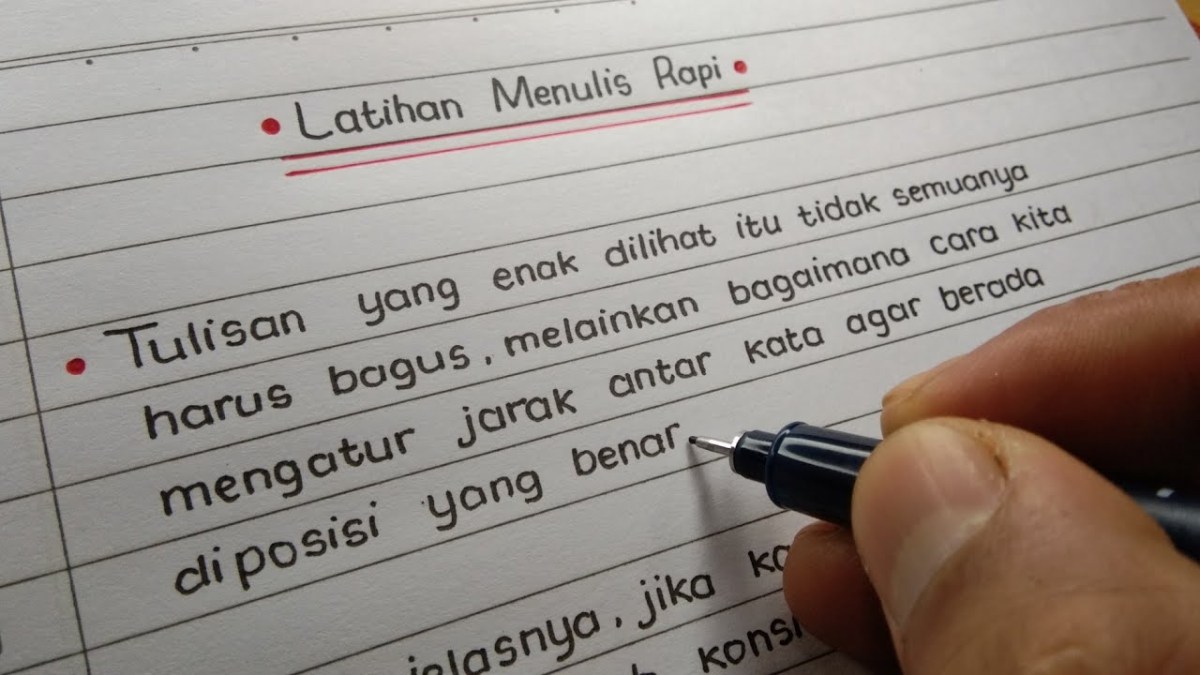 Latihan Menulis Rapi
Tulisan yang enak dilihat itu tidak semuanya
harus bagus, melainkan bagaimana cara kita
mengatur jarak antar kata agar berada
diposisi yang benar
jelasnya, jika